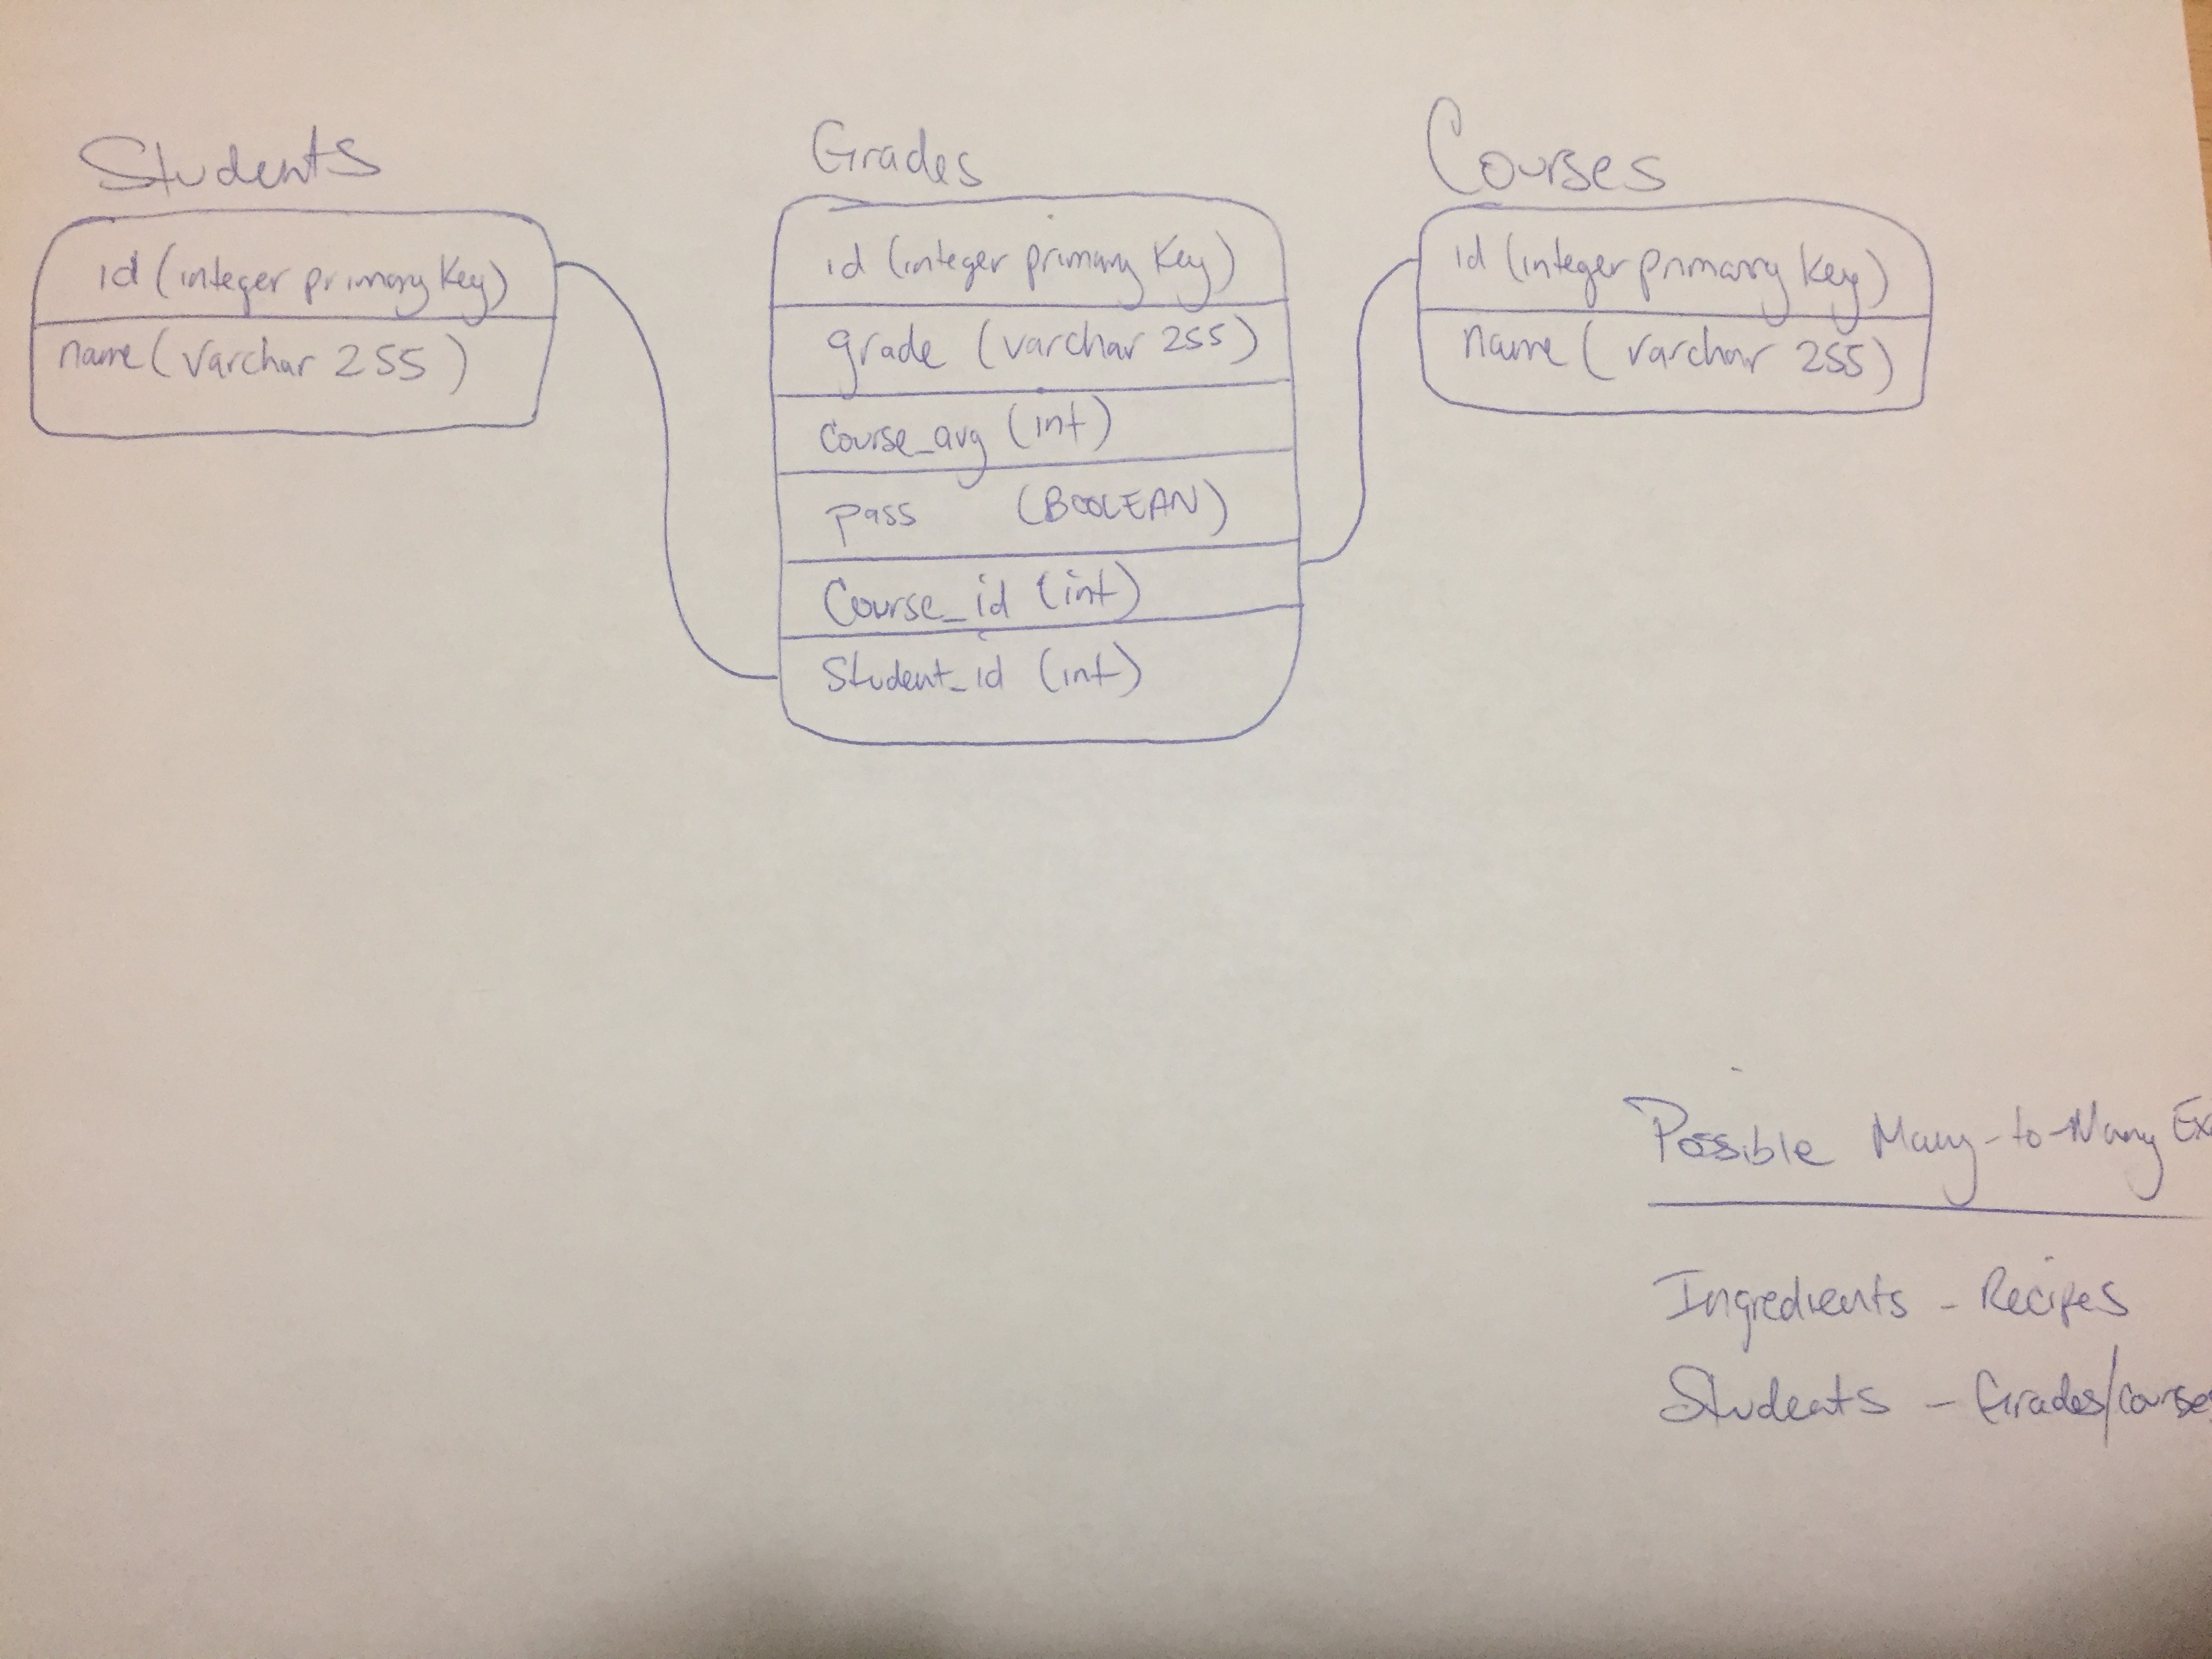 Students
id (integer primary key)
name (varchar 255)
Grades
id (integer primary key)
grade (varchar 255)
course_avg (int)
pass (BOOLEAN)
Course_id (int)
Student_id (int)
Courses
id (integer primary key)
name (varchar 255)
Possible Many-to-Many Ex
Ingredients - Recipes
Students - Grades/course